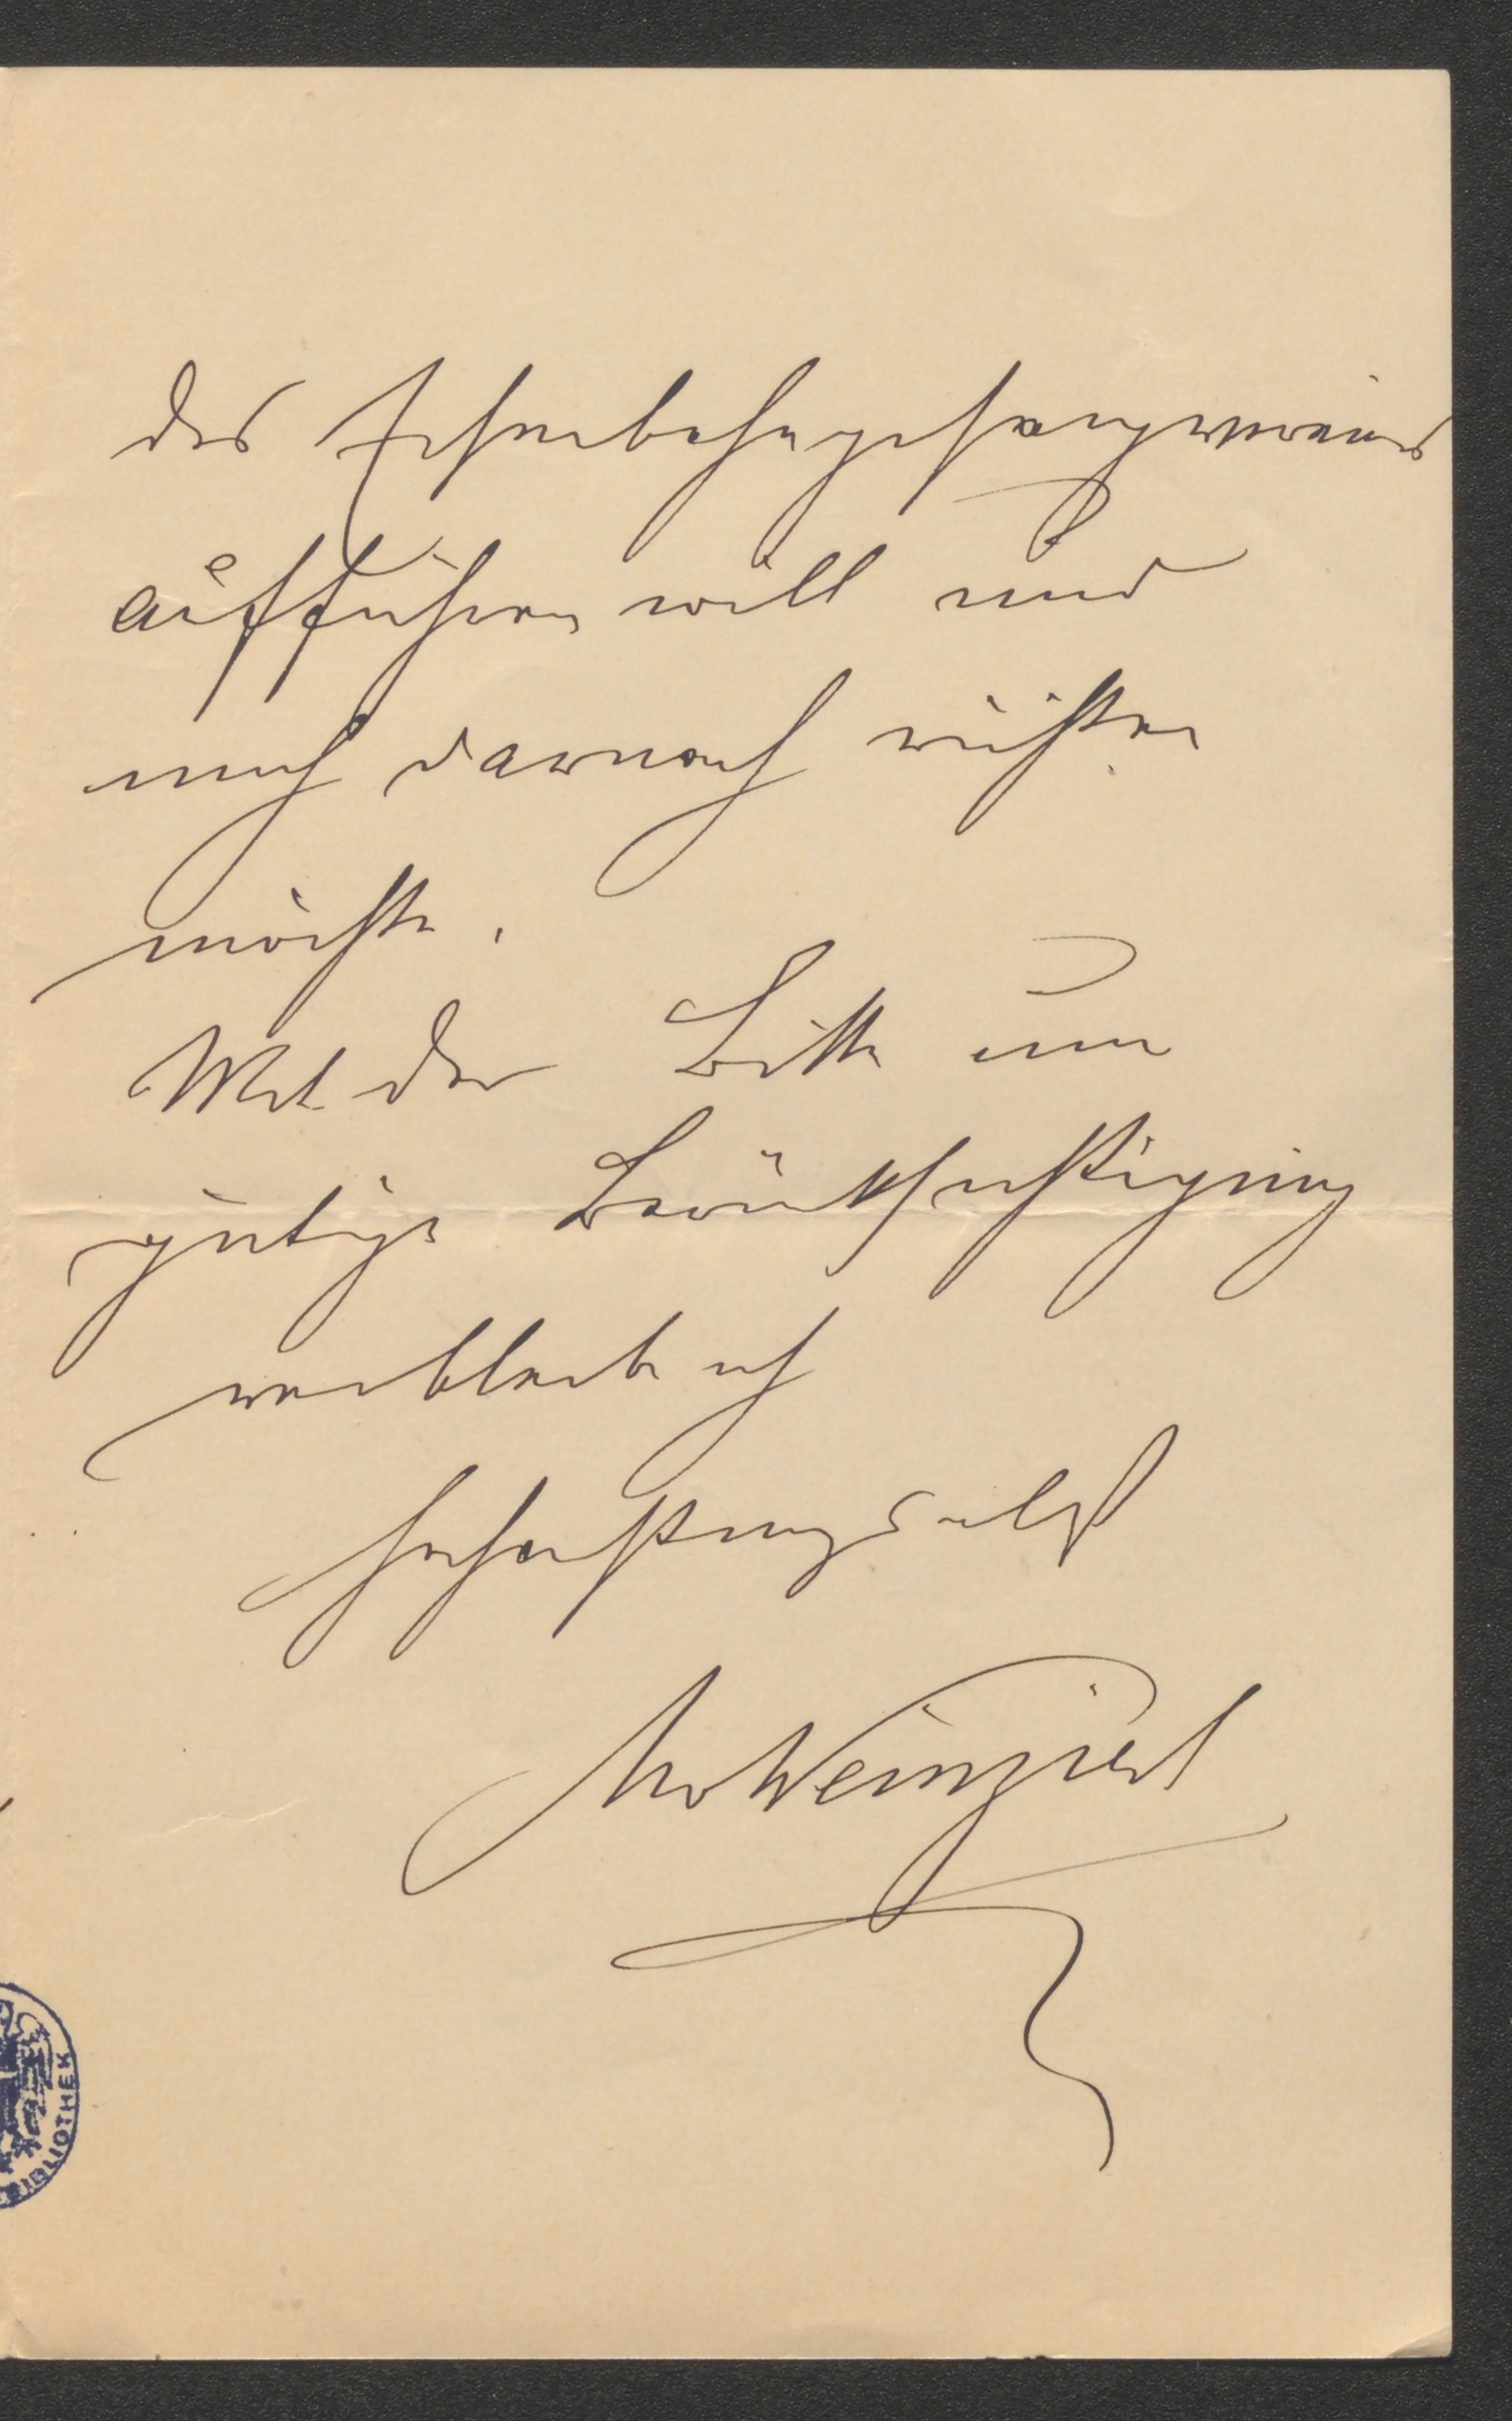 des Eisenbahngesangvereines
aufführen will und
mich darnach richten
möchte.
Mit der Bitte um
gütige Berücksichtigung
verbleibe ich
hochachtungsvollst
MvWeinzierl
BIBLIOTHEK